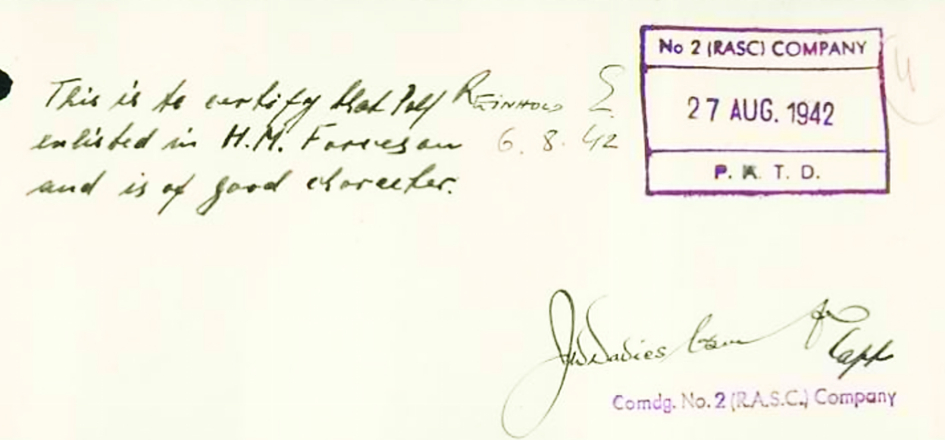 No 2 (RASC) COMPANY
27 AUG. 1942
P. A. T. D.
This is to certify that REINHOLD E.
enlisted in H.M. Forces on 6. 8. 42
and is of good character.
Davies
Capt
Comdg. No. 2 (R.A.S.C.) Company